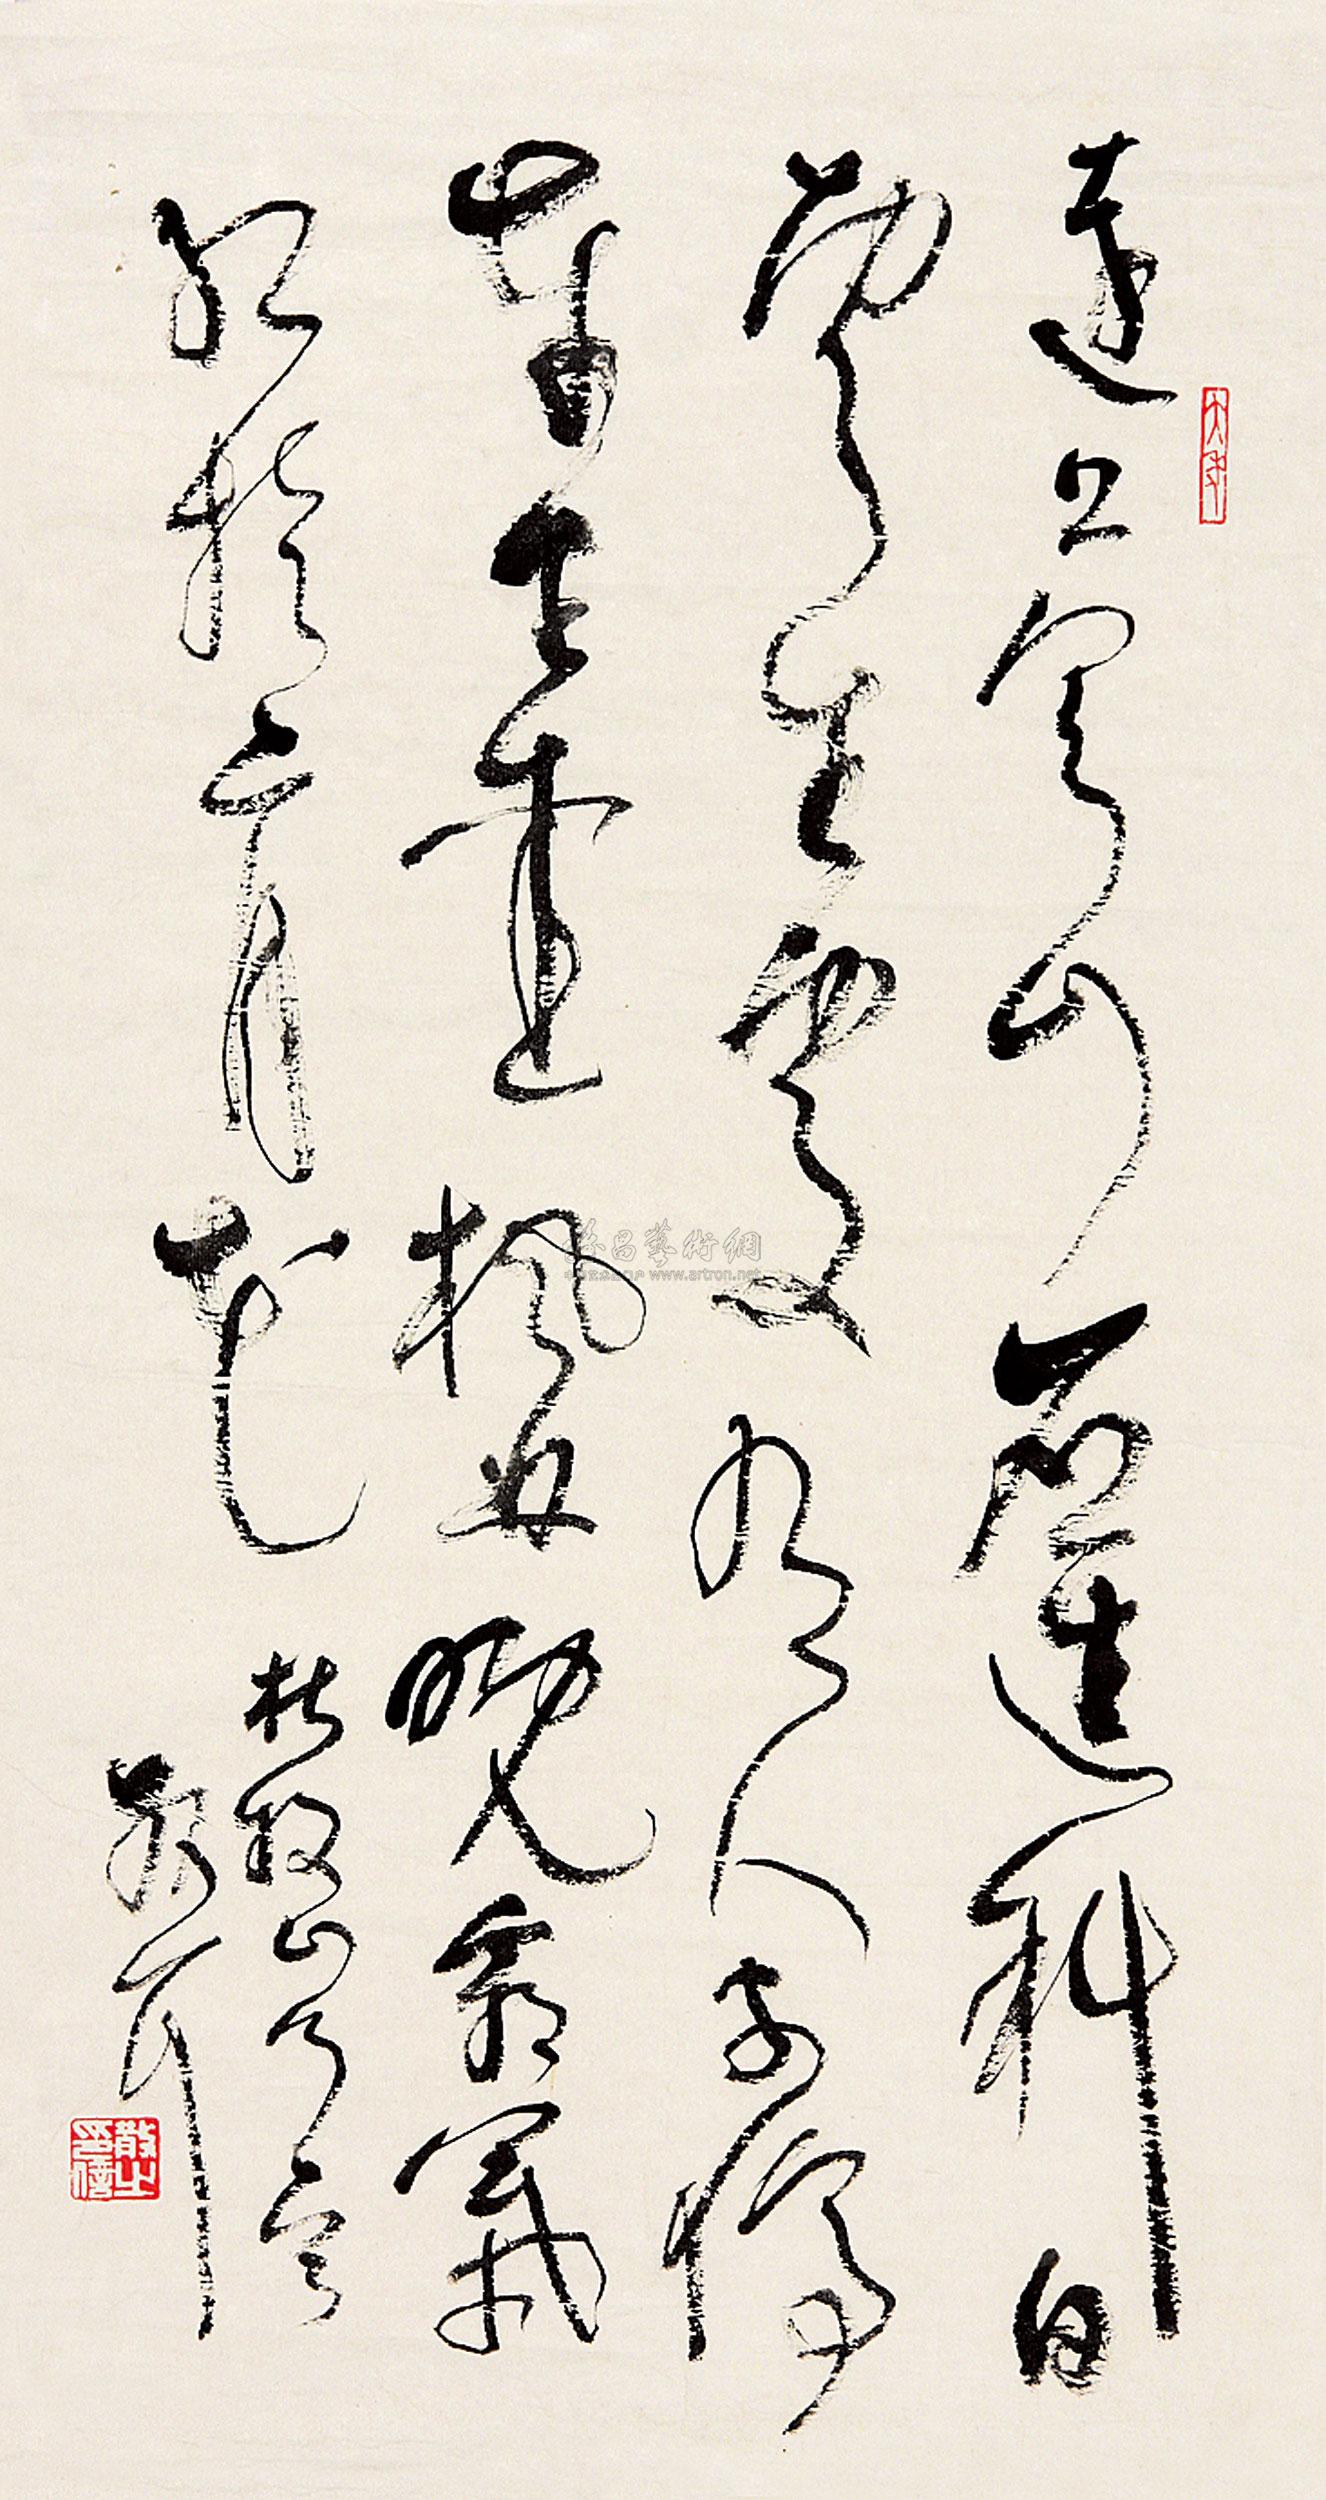 大年
遠上寒山石逕斜白
雲生處有人家停
車坐愛楓林晚霜葉
紅於二月花
杜牧山行
散耳
散之印信
雅昌藝術網
www.artron.net